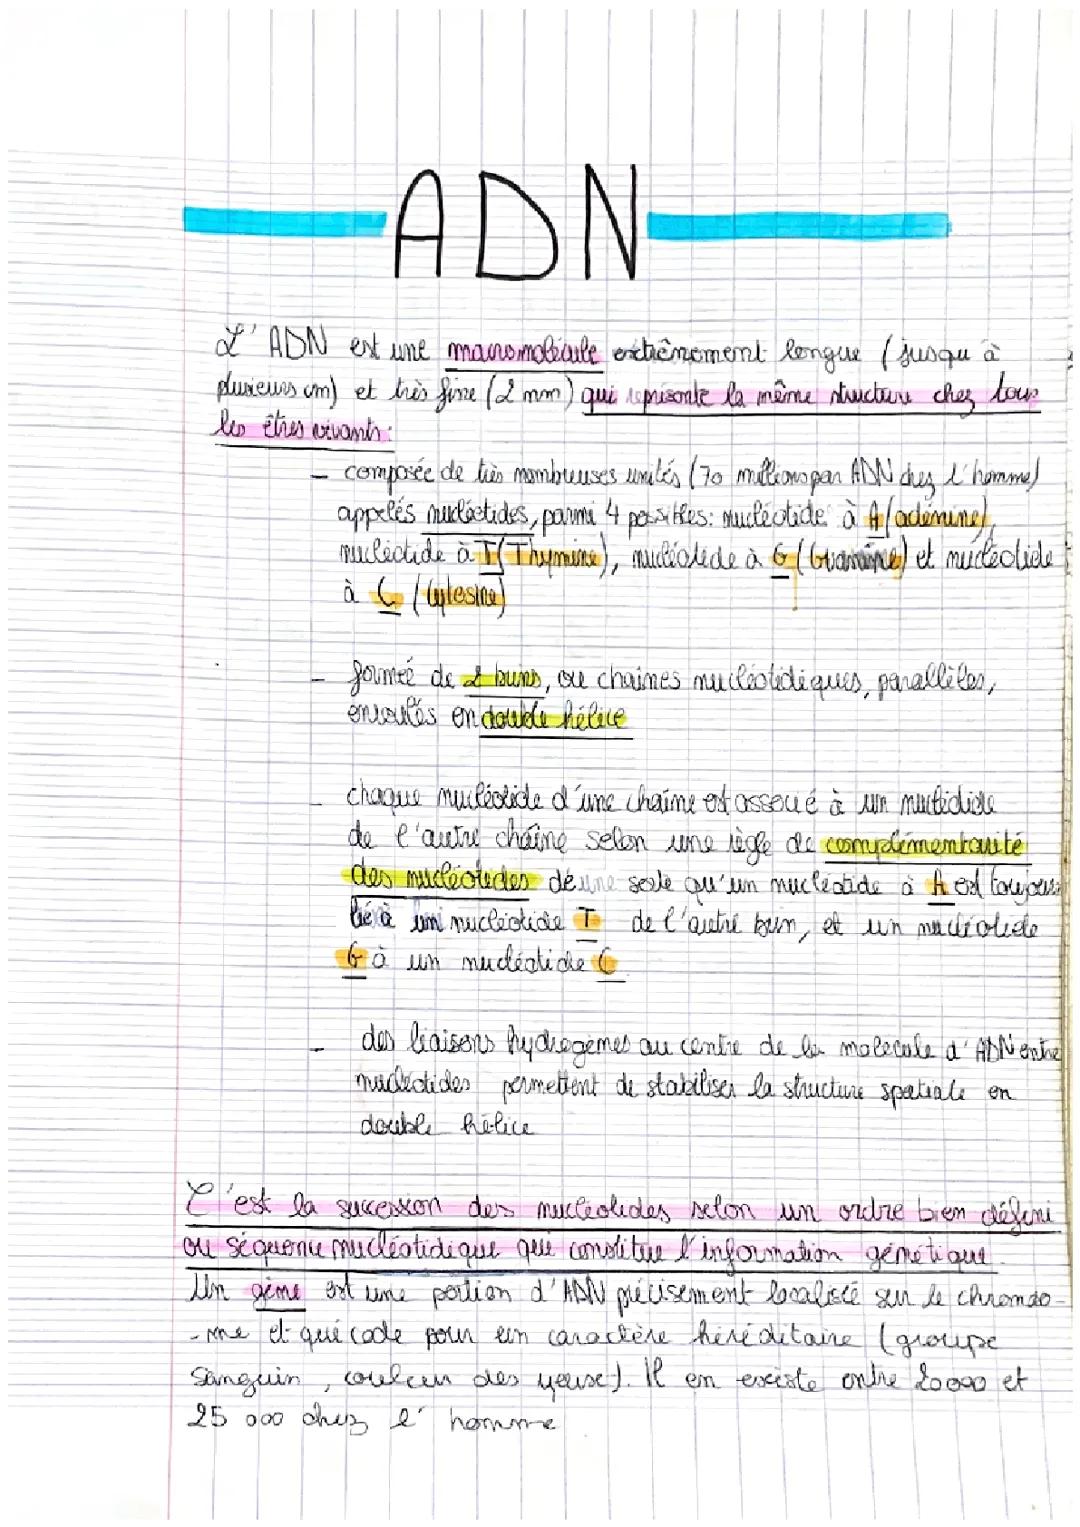 ADN
L'ADN est une macromolécule extrêmement longue (jusqu'à
plusieurs cm) et très fine (2 nm) qui représente la même structure chez tous
les êtres vivants:
- composée de très nombreuses unités (70 millions par ADN chez l'homme)
appelés nucléotides, parmi 4 possibles: nucléotide à A (adénine),
nucléotide à T (Thymine), nucléotide à G (Guanine) et nucléotide
à C (cytosine)
- formée de 2 brins, ou chaînes nucléotidiques, parallèles,
enroulés en double hélice
- chaque nucléotide d'une chaîne est associé à un nucléotide
de l'autre chaîne selon une règle de complémentarité
des nucléotides de une sorte qu'un nucléotide à A est toujours
lié à un nucléotide T de l'autre brin, et un nucléotide
G à un nucléotide C
- des liaisons hydrogènes au centre de la molécule d'ADN entre
nucléotides permettent de stabiliser la structure spatiale en
double hélice
C'est la succession des nucléotides selon un ordre bien défini
ou séquence nucléotidique qui constitue l'information génétique.
Un gène est une portion d'ADN précisement localisé sur le chromoso-
-me et qui code pour un caractère héréditaire (groupe
sanguin, couleur des yeux). Il en existe entre 20000 et
25 000 chez l'homme